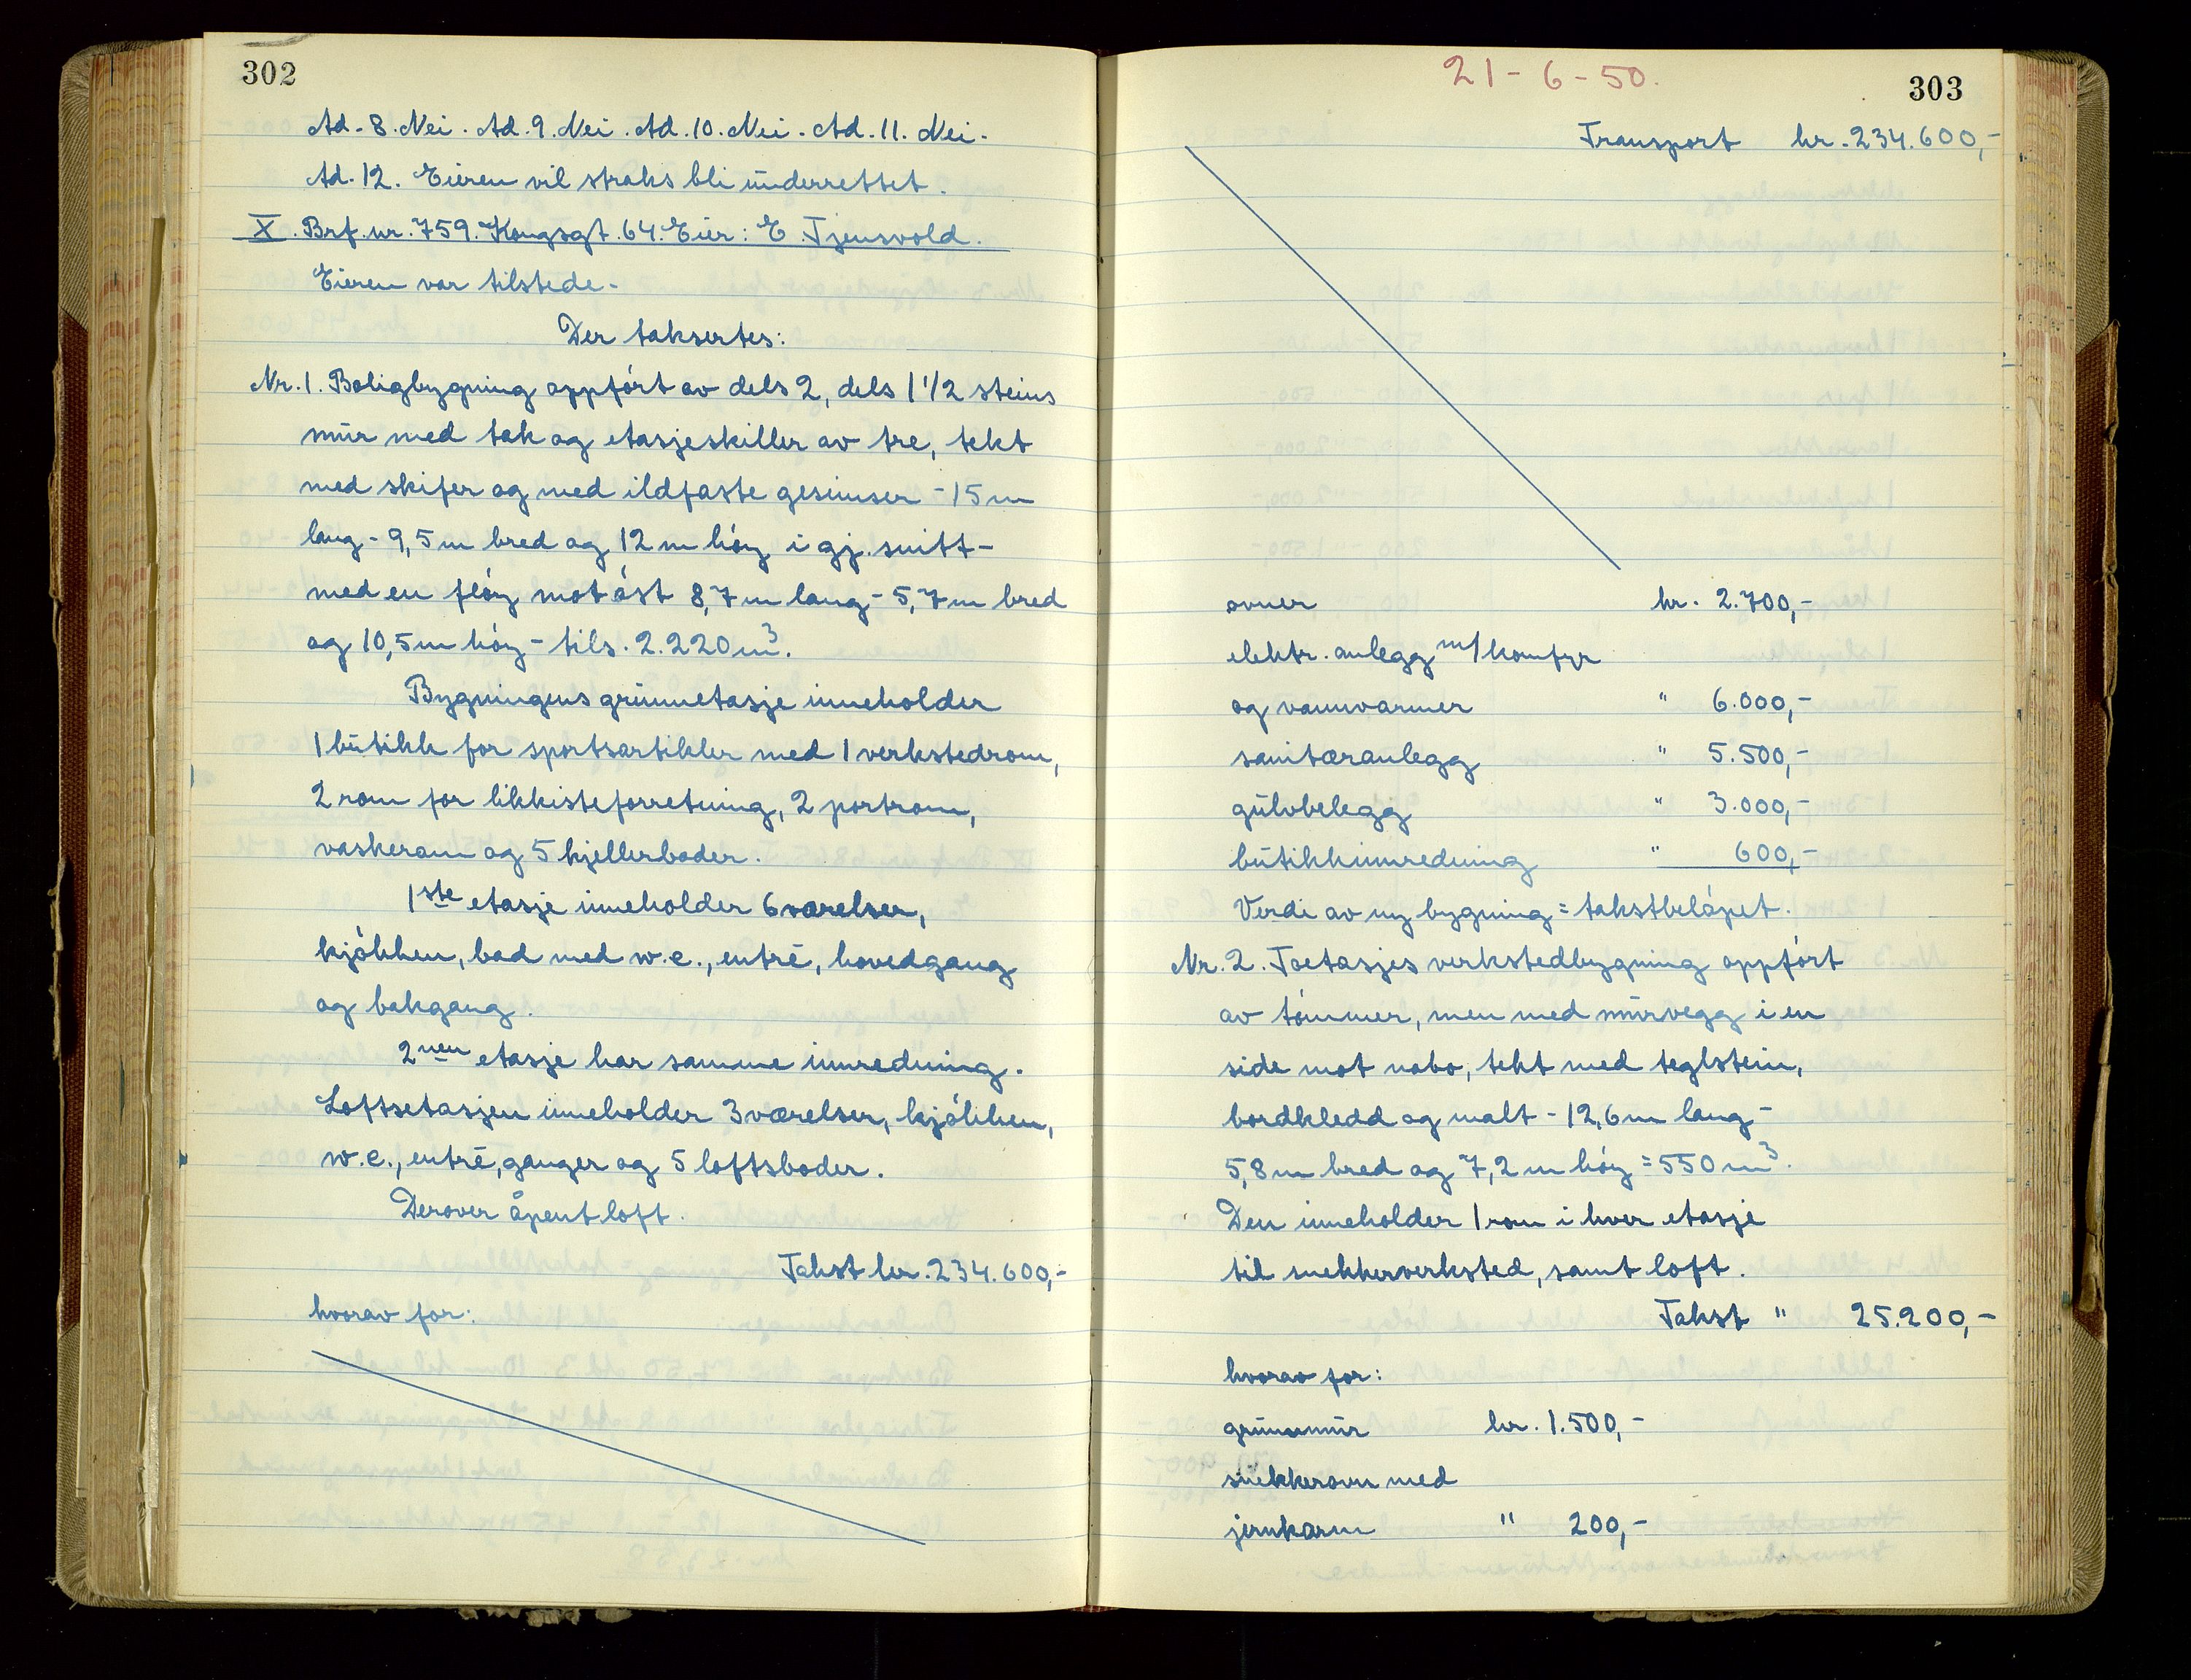 302
Ad. 8. Nei. Ad. 9. Nei. Ad. 10. Nei. Ad. 11. Nei.
Ad. 12. Eieren vil straks bli underrettet.
X. Brf. nr. 759. Kongsgt. 64. Eier: E. Tjensvold.
Eieren var tilstede.
Der taksertes:
Nr. 1. Boligbygning oppført av dels 2, dels 1 1/2 steins
mur med tak og etasjeskiller av tre, tekt
med skifer og med ildfaste gesimser - 15 m
lang - 9,5 m bred og 12 m høy i gj. snitt -
med en fløy mot øst 8,7 m lang - 5,7 m bred
og 10,5 m høy - tils. 2.220 m³.
Bygningens grunnetasje inneholder
1 butikk for sportsartikler med 1 verkstedrom,
2 rom for likkisteforretning, 2 portrom,
vaskerom og 5 kjellerboder.
1ste etasje inneholder 6 værelser,
kjøkken, bad med w.c., entré, hovedgang
og bakgang.
2nen etasje har samme innredning.
Loftsetasjen inneholder 3 værelser, kjøkken,
w.c., entré, ganger og 5 loftsboder.
Derover åpent loft.
Takst kr. 234.600,-
hvorav for:
21-6-50.
303
Transport kr. 234.600,-
ovner kr. 2.700,-
elektr. anlegg m/ komfyr
og vannvarmer " 6.000,-
sanitæranlegg " 5.500,-
gulvbelegg " 3.000,-
butikkinnredning " 600,-
Verdi av ny bygning = takstbeløpet.
Nr. 2. Toetasjes verkstedbygning oppført
av tømmer, men med murvegg i en
side mot nabo, tekt med teglstein,
bordkledd og malt - 12,6 m lang -
5,8 m bred og 7,2 m høy = 550 m³.
Den inneholder 1 rom i hver etasje
til snekkerverksted, samt loft.
Takst " 25.200,-
hvorav for:
grunnmur kr. 1.500,-
snekkerovn med
jernkarm " 200,-